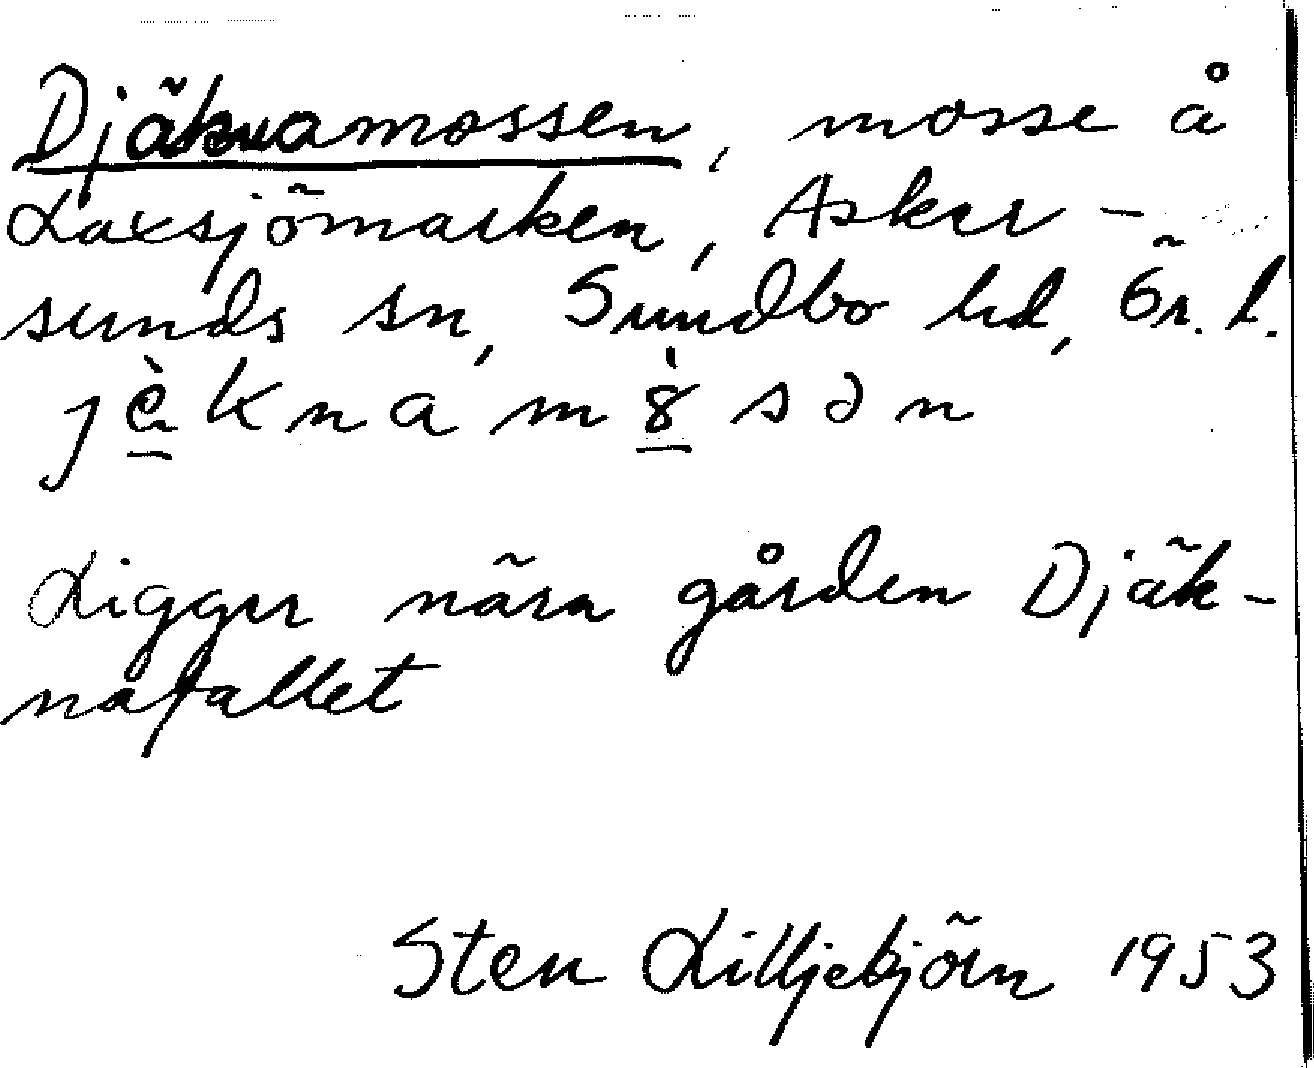 Djäknamossen, mosse å
Laxsjömarken, Asker-
sunds sn, Sundbo hd, Ör. l.
jè̱knamȣ̱̀sən
Ligger nära gården Djäk-
nafallet
Sten Lilljebjörn 1953